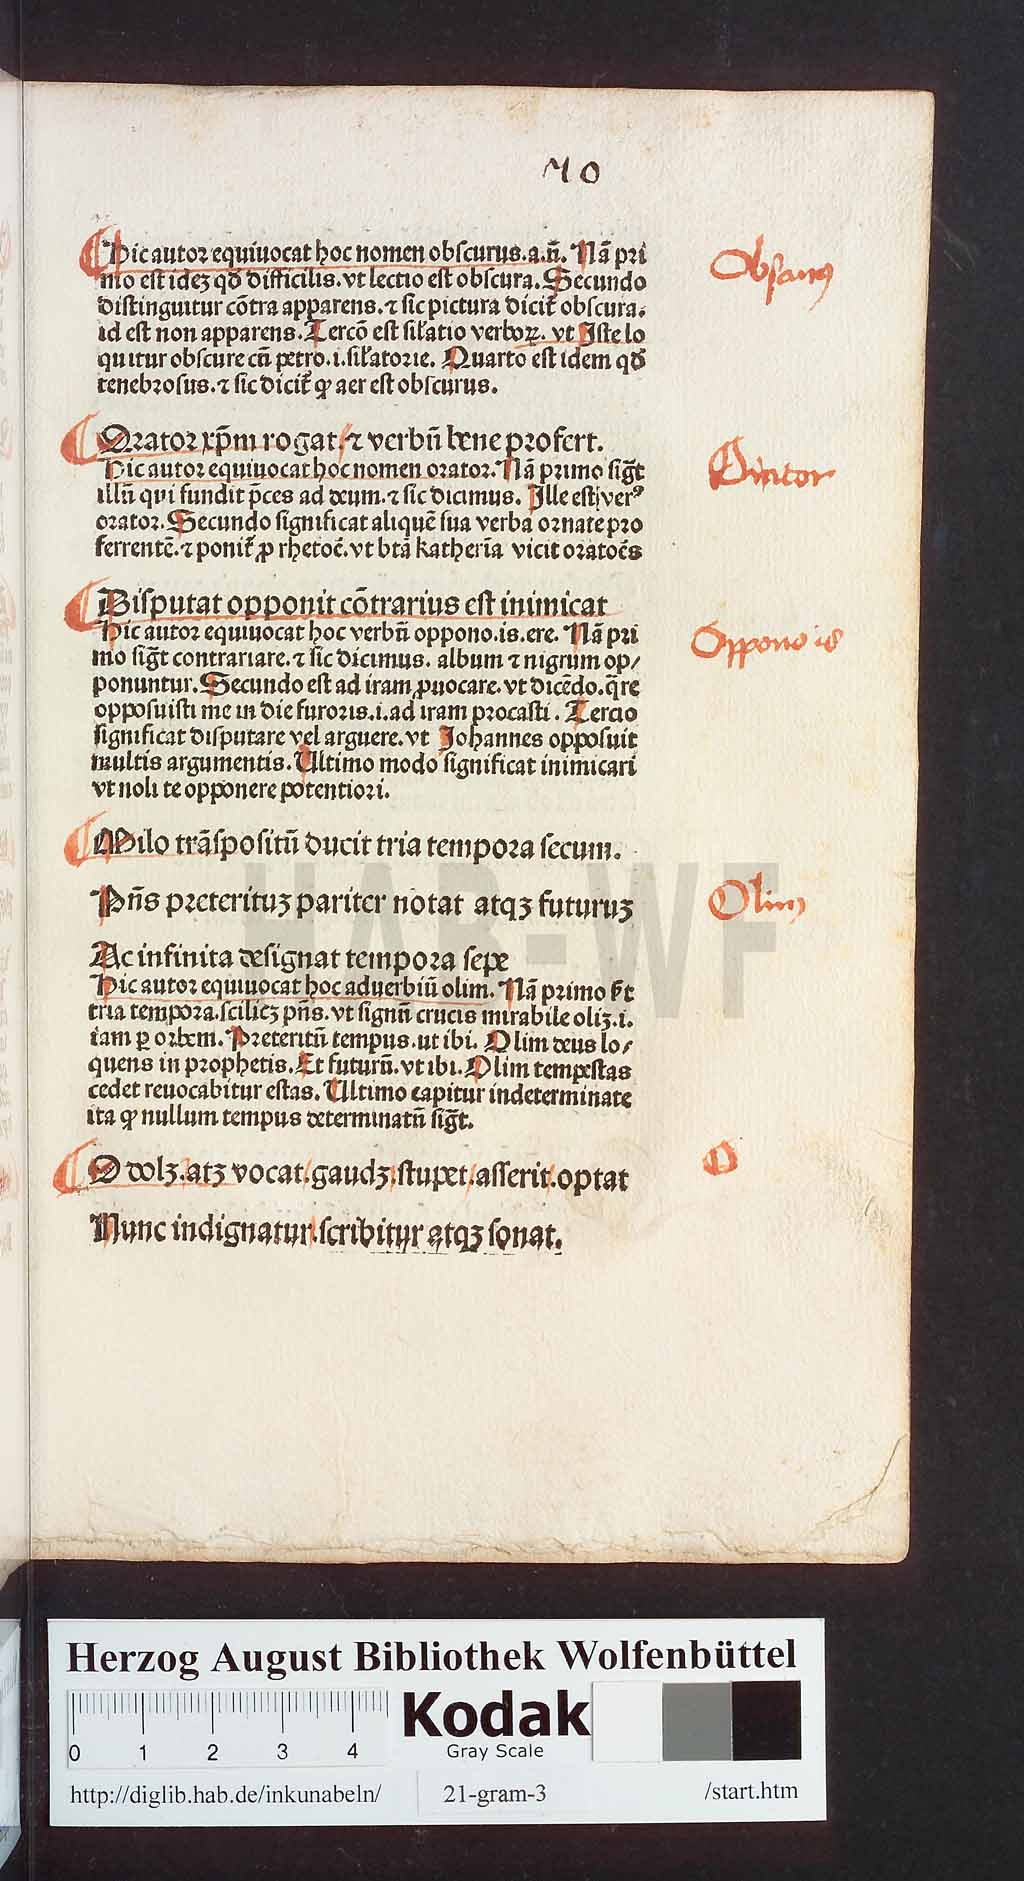 MO
Hic autor equiuocat hoc nomen obscurus.a.u̅. Na̅ pri
mo est ideʒ qd̕ difficilis. vt lectio est obscura. Secundo
distinguitur co̅tra apparens. ⁊ sic pictura dicit̕ obscura.
id est non apparens. Tercō est sil̕atio verboꝝ. vt Iste lo
quitur obscure cu̅ petro .i. sil̕atorie. Quarto est idem qd̕
tenebrosus. ⁊ sic dicit̕ ꝙ aer est obscurus.
Obscurus
Orator xp̅m rogat. ⁊ verbu̅ bene profert.
Hic autor equiuocat hoc nomen orator. Na̅ primo sig̅t
illu̅ qui fundit p̅ces ad deum. ⁊ sic dicimus. Ille est verꝰ
orator. Secundo significat alique̅ sua verba ornate pro
ferrente̅. ⁊ ponit̕ ꝓ rhetoe̅. vt bt̅a katheri̅a vicit oratoe̅s
Orator
Disputat opponit co̅trarius est inimicat
Hic autor equiuocat hoc verbu̅ oppono.is.ere. Na̅ pri
mo sig̅t contrariare. ⁊ sic dicimus. album ⁊ nigrum op/
ponuntur. Secundo est ad iram ꝓuocare. vt dice̅do. q̅re
opposuisti me in die furoris .i. ad iram procasti. Tercio
significat disputare vel arguere. vt Johannes opposuit
multis argumentis. Ultimo modo significat inimicari
vt noli te opponere potentiori.
Oppono is
Milo tra̅spositu̅ ducit tria tempora secum.
Pn̅s preterituʒ pariter notat atqʒ futuruʒ
Olim
Ac infinita designat tempora sepe
Hic autor equiuocat hoc aduerbiu̅ olim. Na̅ primo sr̅t
tria tempora. scilicʒ pn̅s. vt signu̅ crucis mirabile oliʒ .i.
iam ꝑ orbem. Preteritu̅ tempus. ut ibi. Olim deus lo/
quens in prophetis. Et futuru̅. vt ibi. Olim tempestas
cedet reuocabitur estas. Ultimo capitur indeterminate
ita ꝙ nullum tempus determinatu̅ sig̅t.
O dolʒ. atʒ vocat. gaudʒ. stupet. asserit. optat
O
Nunc indignatur. scribitur atqʒ sonat.
HAB-WF
Herzog August Bibliothek Wolfenbüttel
0 1 2 3 4
Kodak
Gray Scale
http://diglib.hab.de/inkunabeln/ 21-gram-3 /start.htm